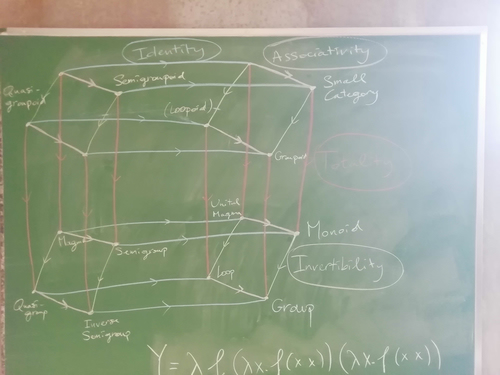 Identity
Associativity
Quasi-
groupoid
Semigroupoid
(Loopoid)
Small
Category
Groupoid
Totality
Unital
Magma
Magma
Semigroup
Monoid
Invertibility
Loop
Quasi-
group
Inverse
Semigroup
Group
Y = λ f. (λx. f(x x)) (λx. f(x x))